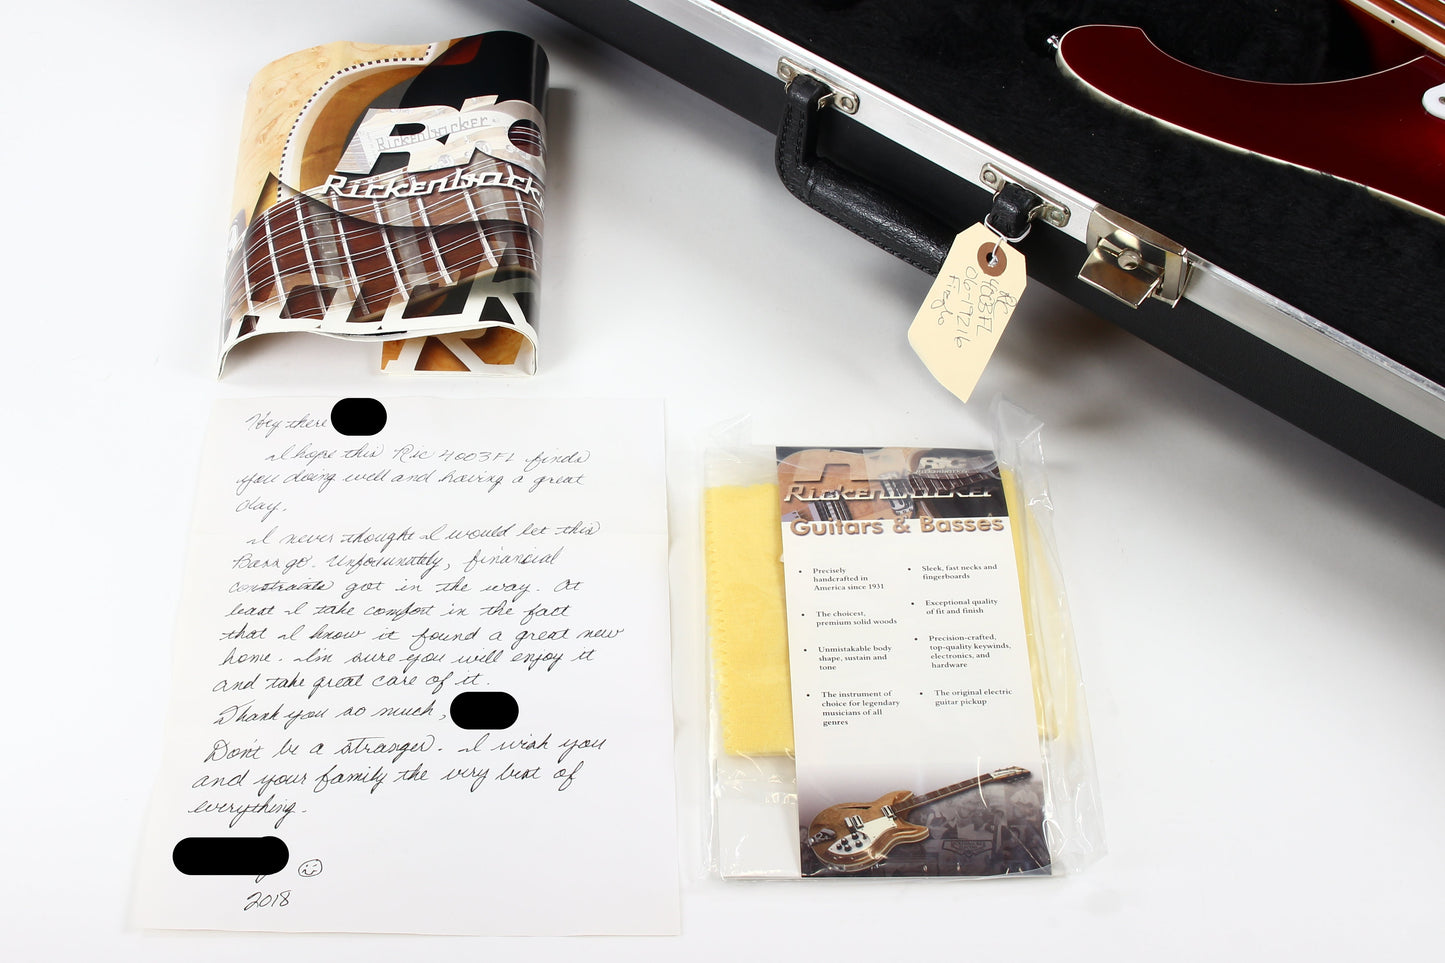 Ric
Rickenbacker
Rickenbacker
Ric
4003FL
06-19216
Fireglo
Hey there
I hope this Ric 4003FL finds
you doing well and having a great
day.
I never thought I would let this
Bass go. Unfortunately, financial
constraints got in the way. At
least I take comfort in the fact
that I know it found a great new
home. I'm sure you will enjoy it
and take great care of it.
Thank you so much,
Don't be a stranger. I wish you
and your family the very best of
everything.
2018
Ric
Rickenbacker
Guitars & Basses
• Precisely
handcrafted in
America since 1931
• The choicest,
premium solid woods
• Unmistakable body
shape, sustain and
tone
• The instrument of
choice for legendary
musicians of all
genres
• Sleek, fast necks and
fingerboards
• Exceptional quality
of fit and finish
• Precision-crafted,
top-quality keywinds,
electronics, and
hardware
• The original electric
guitar pickup